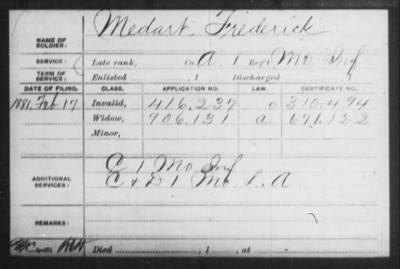 NAME OF SOLDIER: Medart, Frederick
SERVICE: Late rank, Co. A. 1 Reg't Mo Inf
TERM OF SERVICE: Enlisted , 1 Discharged , 1
DATE OF FILING. CLASS. APPLICATION NO. LAW. CERTIFICATE NO.
1881 Feb 17 Invalid, 416.237 310.494
Widow, 706.131 a 691.122
Minor,
C 1 Mo Inf
ADDITIONAL SERVICES: C & D 1 Mo L. A
REMARKS:
Died , 1 , at